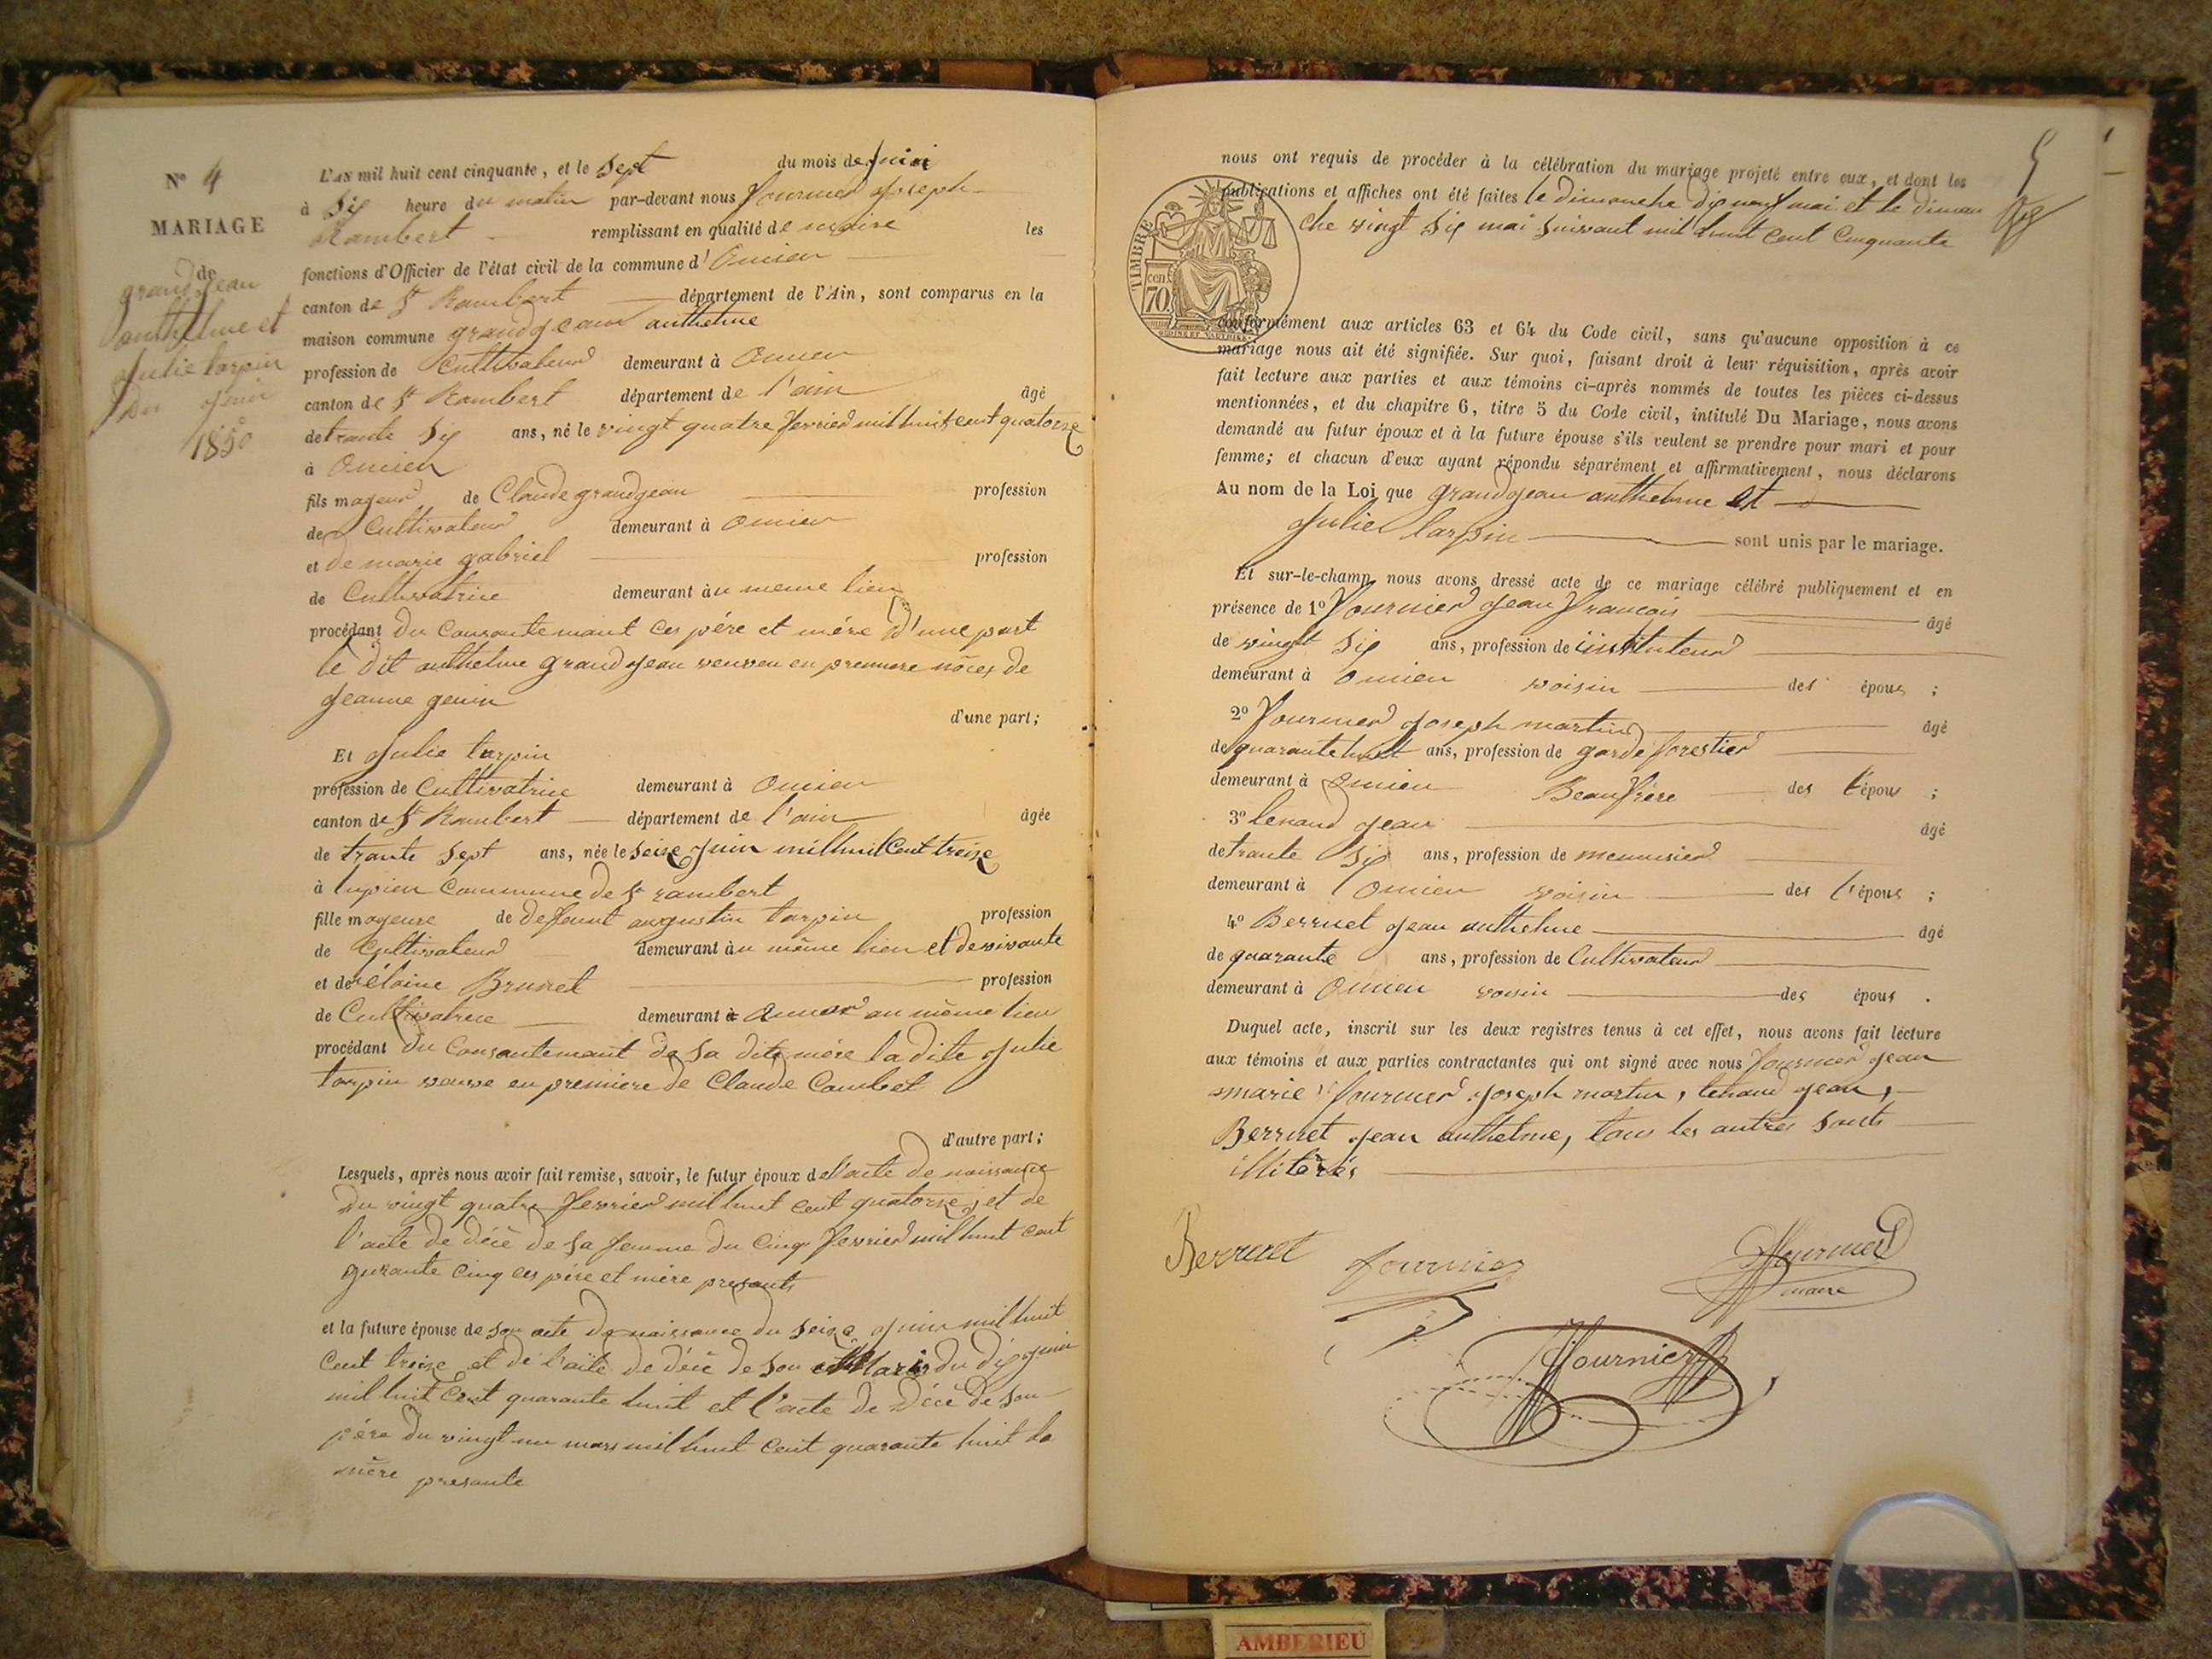 N° 4
MARIAGE
de
grandjean
anthelme et
Julie tarpin
du juin
1850
L'AN mil huit cent cinquante, et le sept du mois de juin
à six heure du matin par-devant nous fournier joseph
Rambert remplissant en qualité de maire les
fonctions d'Officier de l'état civil de la commune d'Oncieu
canton de St Rambert département de l'Ain, sont comparus en la
maison commune grandjean anthelme
profession de Cultivateur demeurant à Oncieu
canton de St Rambert département de l'ain âgé
de trante six ans, né le vingt quatre fevrier mil huit cent quatorze
à Oncieu
fils mageur de Claude grandjean profession
de Cultivateur demeurant à Oncieu
et de marie gabriel profession
de Cultivatrice demeurant àu meme lieu
procédant du consantemant ces père et mère d'une part
le dit anthelme grandjean veuveu en premiere nôces de
jeanne genin
d'une part;
Et Julie tarpin
profession de Cultivatrice demeurant à Oncieu
canton de St Rambert département de l'ain âgée
de trante sept ans, née le seize juin mil huit cent treize
à lupieu Commune de St rambert
fille mageure de deffount augustin tarpin profession
de Cultivateur demeurant àu même lieu et de vivante
et de Brunet profession
de Cultivatrice demeurant à au même lieu
procédant du consantemant de sa dite mère la dite julie
tarpin veuve en premiere de Claude Combet
d'autre part;
Lesquels, après nous avoir fait remise, savoir, le futur époux de l'acte de naissance
du vingt quatre fevrier mil huit cent quatorze, et de
l'acte de décè de sa femme du cinq fevrier mil huit cent
qurante cinq ces père et mère presants
et la future épouse de son acte de naissance du seize juin mil huit
cent treize et de l'acte de décè de son Mari du dix juin
mil huit cent quarante huit et l'acte de décè de son
père du vingt un mars mil huit cent quarante huit la
mère presante
5
nous ont requis de procéder à la célébration du mariage projeté entre eux, et dont les
publications et affiches ont été faites le dimanche dix neuf mai et le diman
che vingt six mai suivant mil huit cent cinquante
TIMBRE
cen.
70
conformément aux articles 63 et 64 du Code civil, sans qu'aucune opposition à ce
mariage nous ait été signifiée. Sur quoi, faisant droit à leur réquisition, après avoir
fait lecture aux parties et aux témoins ci-après nommés de toutes les pièces ci-dessus
mentionnées, et du chapitre 6, titre 5 du Code civil, intitulé Du Mariage, nous avons
demandé au futur époux et à la future épouse s'ils veulent se prendre pour mari et pour
femme; et chacun d'eux ayant répondu séparément et affirmativement, nous déclarons
Au nom de la Loi que grandjean anthelme et
Julie tarpin sont unis par le mariage.
Et sur-le-champ nous avons dressé acte de ce mariage célébré publiquement et en
présence de 1° fournier jean françois âgé
de vingt six ans, profession de instituteur
demeurant à Oncieu voisin des épous ;
2° fournier joseph martin âgé
de quarante huit ans, profession de garde forestier
demeurant à Oncieu Beaufrère des l'épous ;
3° tenand jean âgé
de trante six ans, profession de menuisier
demeurant à Oncieu voisin des l'épous ;
4° Berruet jean anthelme âgé
de quarante ans, profession de Cultivateur
demeurant à Oncieu voisin des épous .
Duquel acte, inscrit sur les deux registres tenus à cet effet, nous avons fait lecture
aux témoins et aux parties contractantes qui ont signé avec nous fournier jean
marie fournier joseph martin, tenand jean,
Berruet jean anthelme, tous les autres sonts
illiterés
Berruet fournier fournier
maire
fournier
AMBERIEU